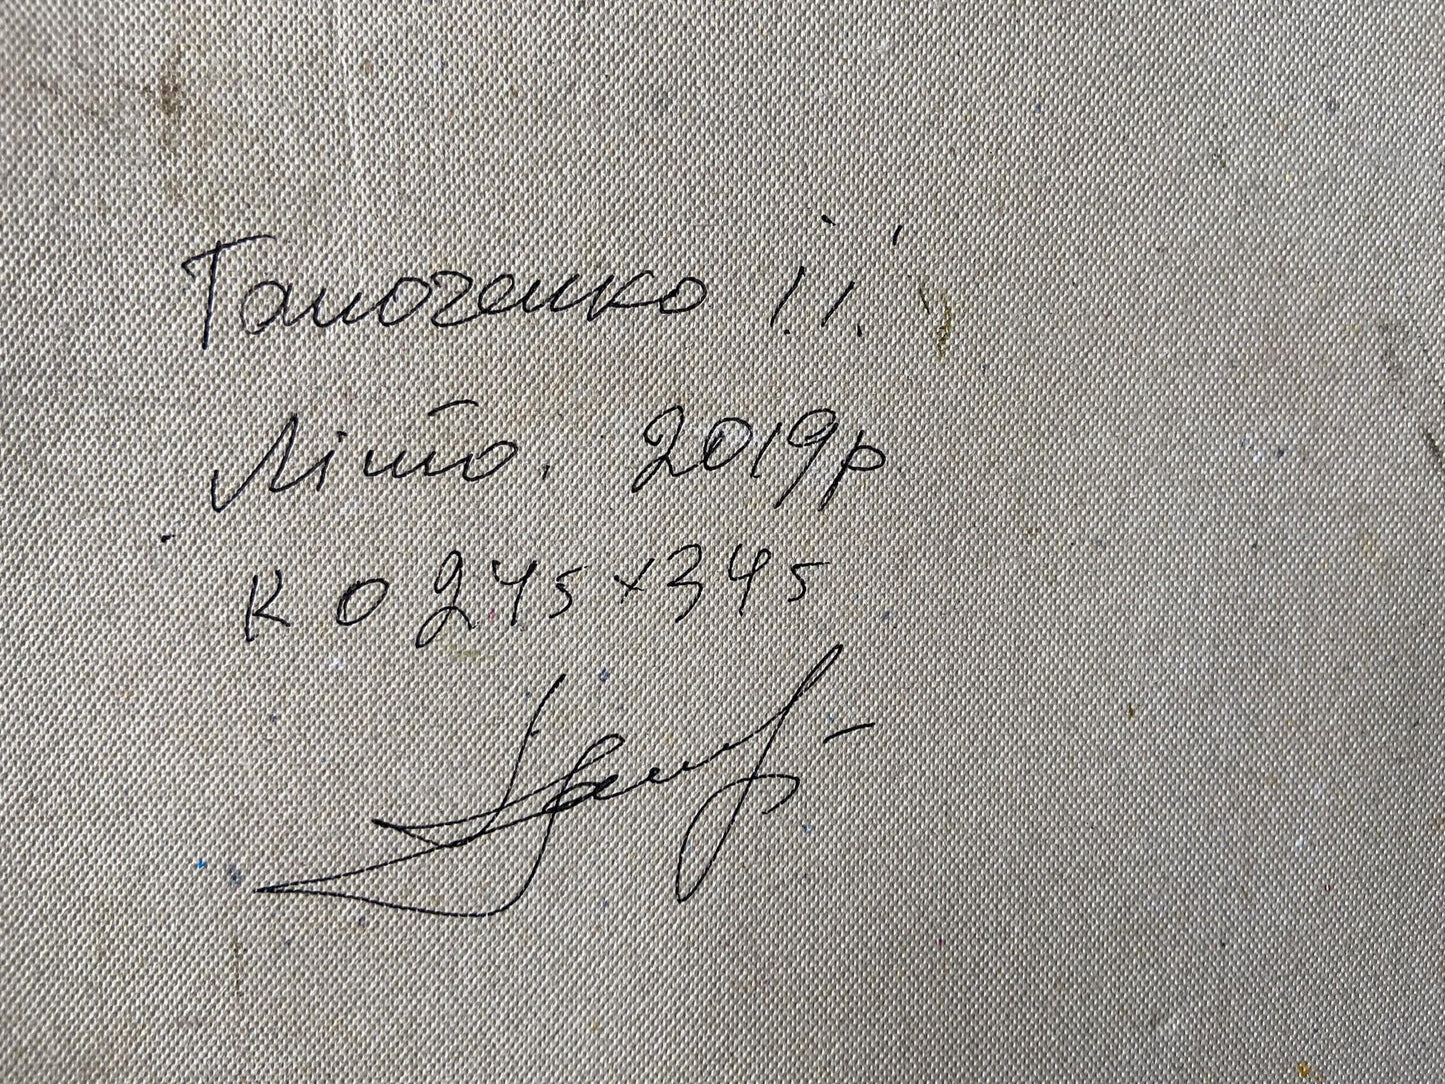 Гапоченко І. І.
Літо. 2019р
К О 245 x 345